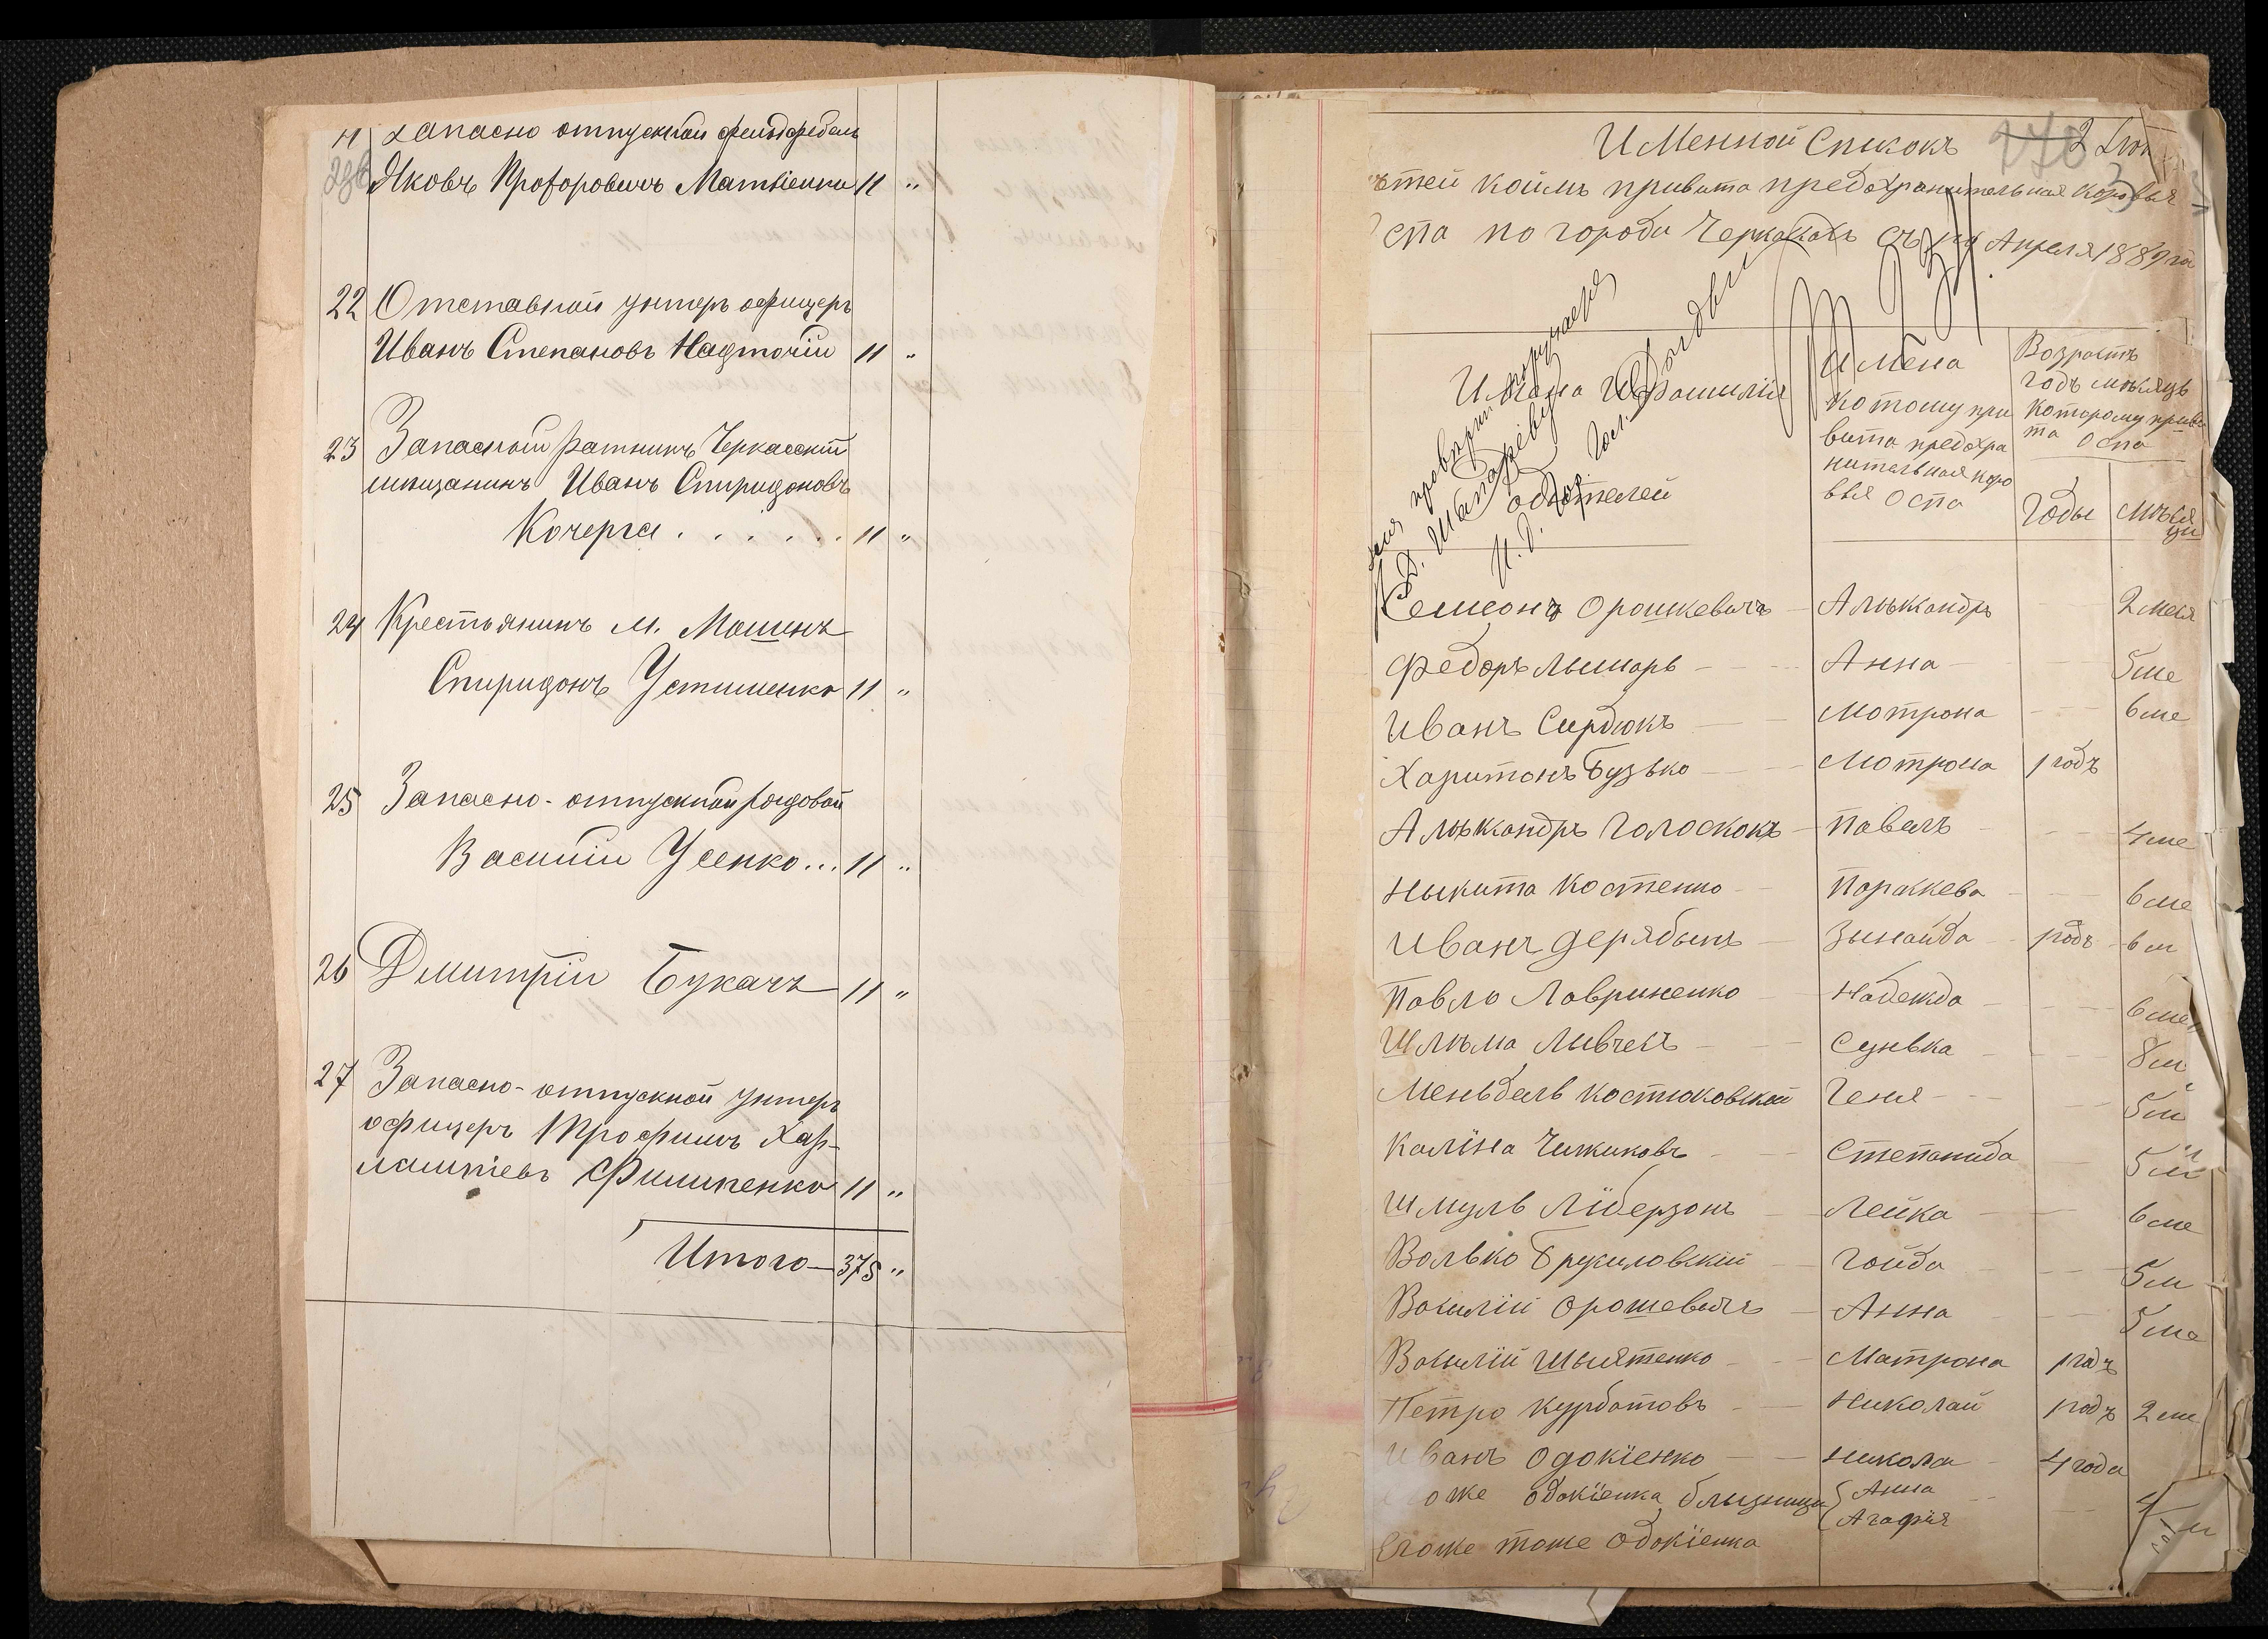 Запасно отпускной фельдфебель
Яковъ Прохоровичъ Матвіенко 11 "
22 Отставной унтеръ офицеръ
Иванъ Степановъ Надточій 11 "
23 Запасный ратникъ Черкасскій
мѣщанинъ Иванъ Спиридоновъ
Кочерга . . . . . . 11 "
24 Крестьянинъ м. Мошнъ
Спиридонъ Устименко 11 "
25 Запасно-отпускной рядовой
Василій Усенко... 11 "
26 Дмитрій Букачъ 11 "
27 Запасно-отпускной унтеръ
офицеръ Трофимъ Хар-
лампіевъ Филипенко 11 "
Итого — 375 "
Именной Списокъ
ѣтей коимъ привита предохранительная коровья
спа по городи Черкасахъ съ Апреля 1889 го
Имена и Фамилія
одытелей
Имена
котому при
вита предохра
нительная коро
вья оспа
Возрастъ
годъ мѣсяцъ
которому приви
та оспа
Годы
мѣся
цы
Семеонъ Орошкевичъ — Алѣксандръ 2 меся
Федоръ Лымарь — Анна 5 ме
Иванъ Сырдюкъ — Мотрона 6 ме
Харитонъ Бузько — Мотрона 1 годъ
Алѣксандръ Голоскокъ — Павелъ 4 ме
Ныкита Костенко — Параскева 6 ме
Иванъ Дерябынъ — Зынаида 1 годъ 6 м
Павло Лавриненко — Надежда 6 ме
Шлѣма Ливчекъ — Сунька 8 м
Меньдель Костюковскій Геня 5 м
Каліна Чижиковъ — Степанида 5 м
Шмуль Ліберзонъ — Лейка 6 ме
Волько Брусиловскій — Гойда 5 м
Василій Орошевичъ — Анна 5 ме
Василій Шыятенко — Матрона 1 годъ
Петро Курбатовъ — Николай 1 годъ 2 ме
Иванъ Одокіенко — Никола 4 года
оже Одокіенка близници { Анна
Агафія 4 м
Егоже тоже Одокіенка